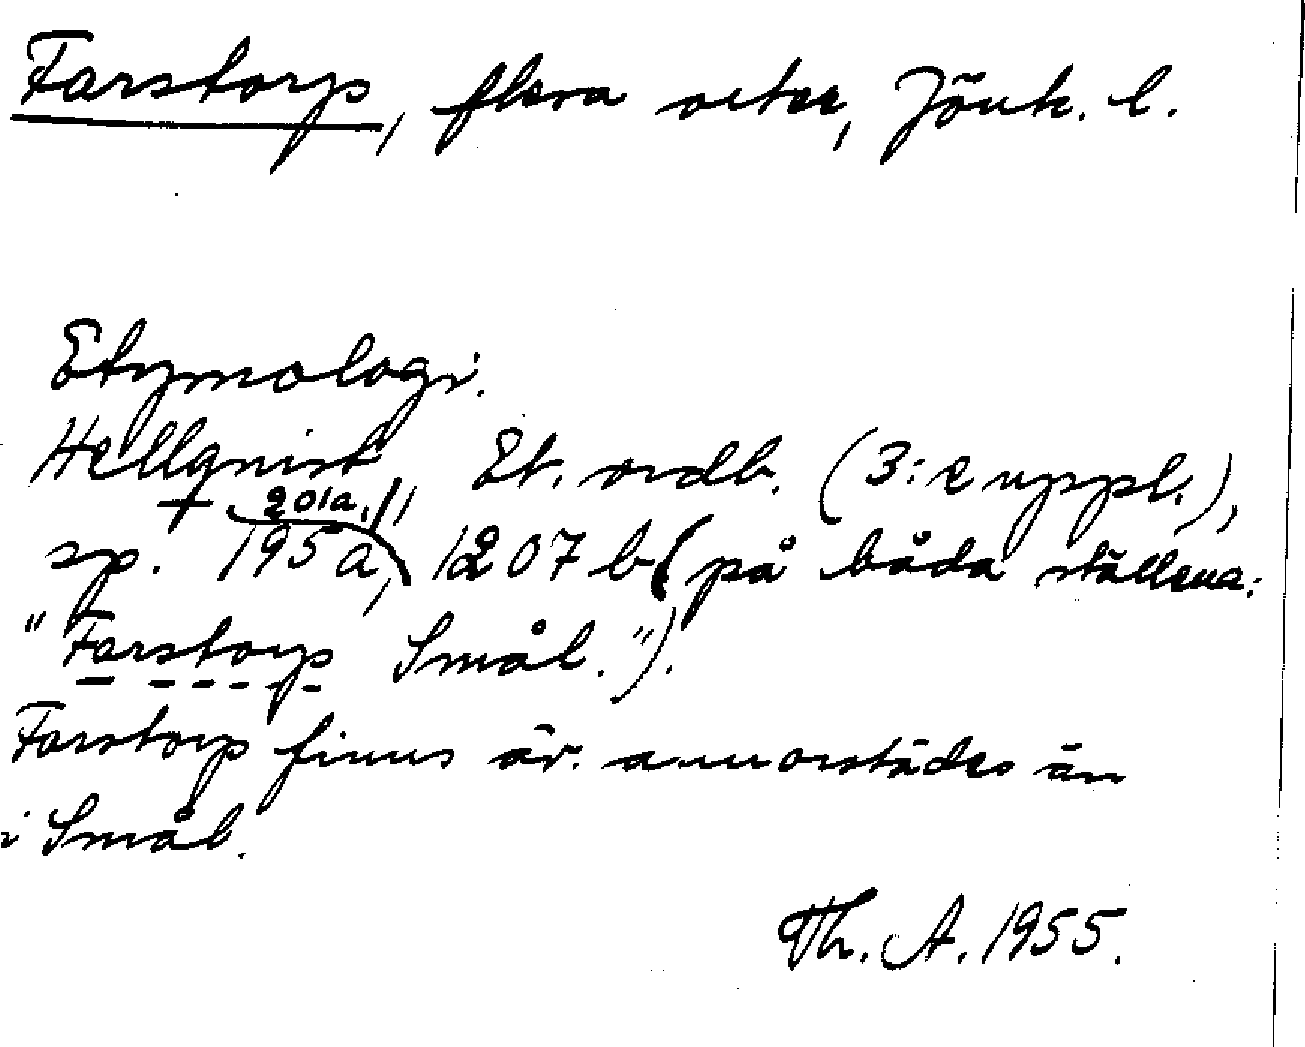 Farstorp, flera orter, Jönk. l.
Etymologi.
Hellqnist, Et. ordb. (3:e uppl.),
+ 201a,
sp. 195 a, 1207 b (på båda ställena:
"Farstorp Smål.").
Farstorp finns äv. annorstädes än
i Smål.
Th. A. 1955.